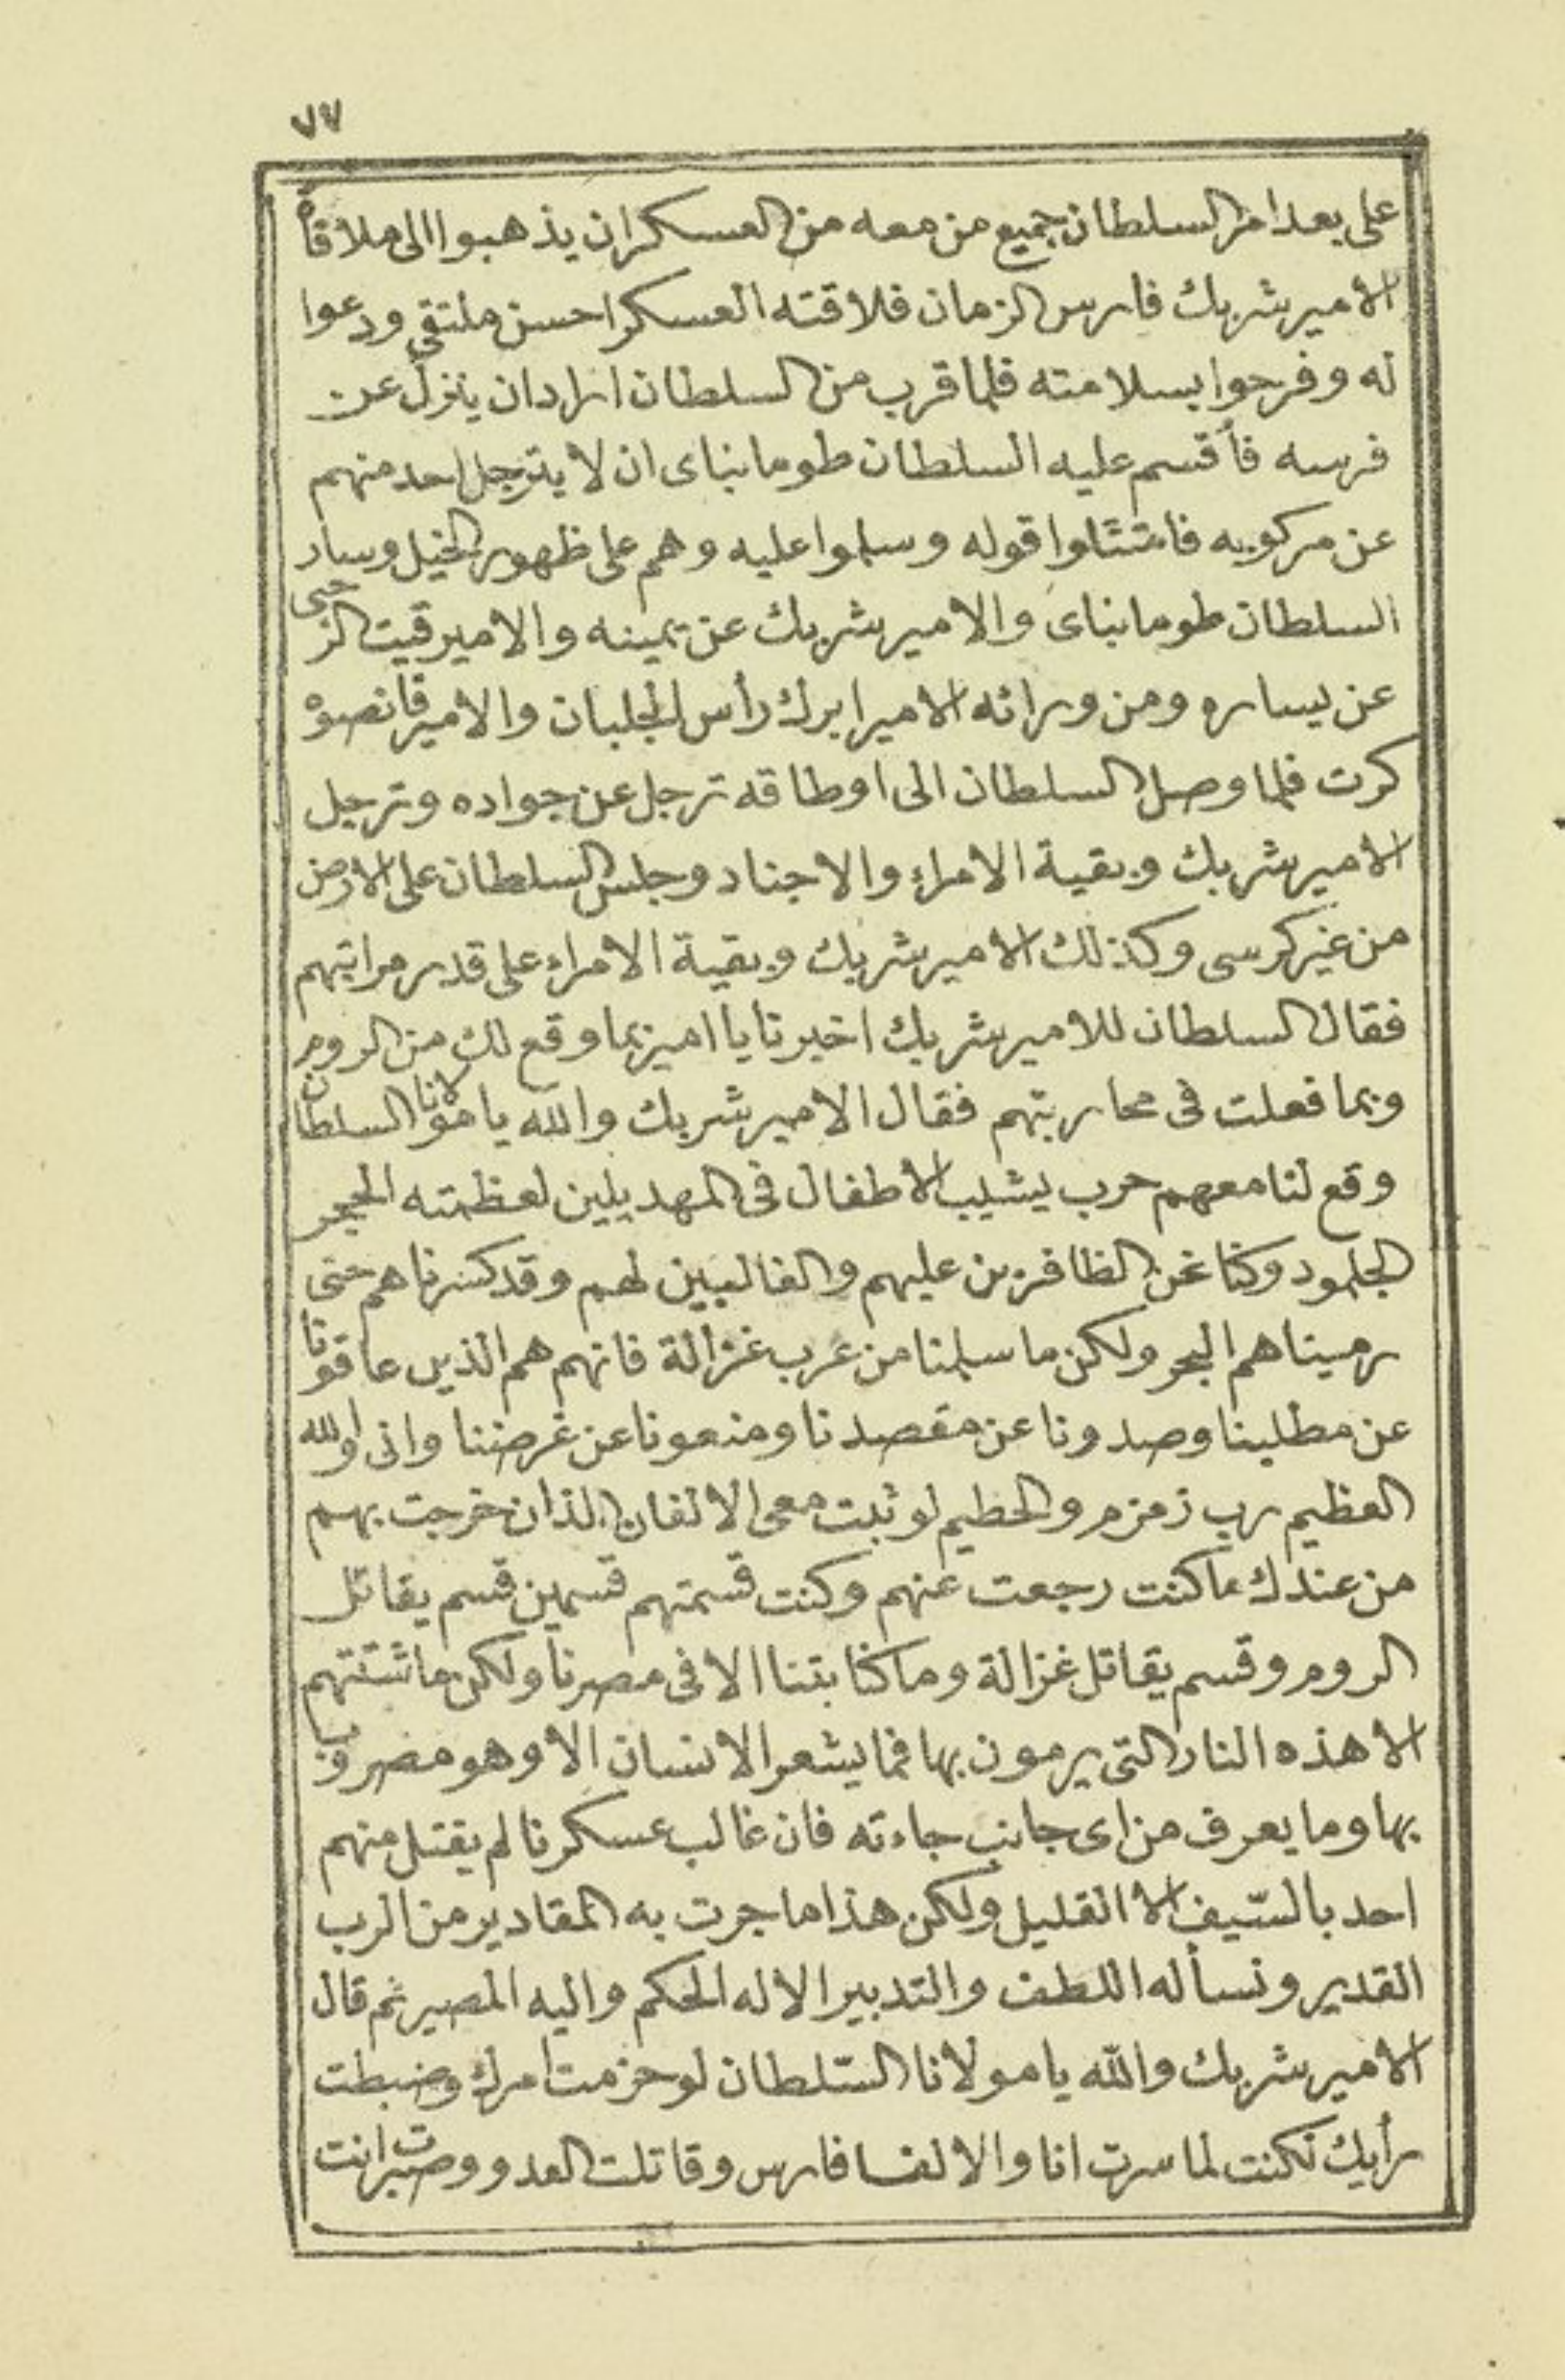 ٧٧
على بعد امر السلطان جميع من معه من العسكر ان يذهبوا الى ملاقاة
الامير شربك فارس الزمان فلاقته العسكر احسن ملتقى ودعوا
له وفرحوا بسلامته فلما قرب من السلطان اراد ان ينزل عن
فرسه فأقسم عليه السلطان طومانباى ان لا يترجل احد منهم
عن مركوبه فامتثلوا قوله وسلموا عليه وهم على ظهور الخيل وسار
السلطان طومانباى والامير شربك عن يمينه والامير قيت الرحبى
عن يساره ومن ورائه الامير ابرك رأس الجلبان والامير قانصوه
كرت فلما وصل السلطان الى اوطاقه ترجل عن جواده وترجل
الامير شربك وبقية الامراء والاجناد وجلس السلطان على الارض
من غير كرسى وكذلك الامير شربك وبقية الامراء على قدر مراتبهم
فقال السلطان للامير شربك اخبرنا يا امير بما وقع لك من الروم
وبما فعلت فى محاربتهم فقال الامير شربك والله يا مولانا السلطان
وقع لنا معهم حرب يشيب الاطفال فى المهد يلين لعظمته الحجر
الجلمود وكنا نحن الظافرين عليهم والغالبين لهم وقد كسرناهم حتى
رميناهم البحر ولكن ما سلمنا من عرب غزالة فانهم هم الذين عاقونا
عن مطلبنا وصدونا عن مقصدنا ومنعونا عن غرضنا وانى والله
العظيم رب زمزم والحطيم لو ثبت معى الالفان الذان خرجت بهم
من عندك ما كنت رجعت عنهم وكنت قسمتهم قسمين قسم يقاتل
الروم وقسم يقاتل غزالة وما كنا بتنا الا فى مصرنا ولكن ما شتتهم
الا هذه النار التى يرمون بها فما يشعر الانسان الا وهو مضروب
بها وما يعرف من اى جانب جاءته فان غالب عسكرنا لم يقتل منهم
احد بالسّيف الا القليل ولكن هذا ما جرت به المقادير من الرب
القدير ونسأله اللطف والتدبير الا له الحكم واليه المصير ثم قال
الامير شربك والله يا مولانا السّلطان لو حزمت امرك وضبطت
رأيك لكنت لما سرت انا والالف فارس وقاتلت العدو وصبرت انت